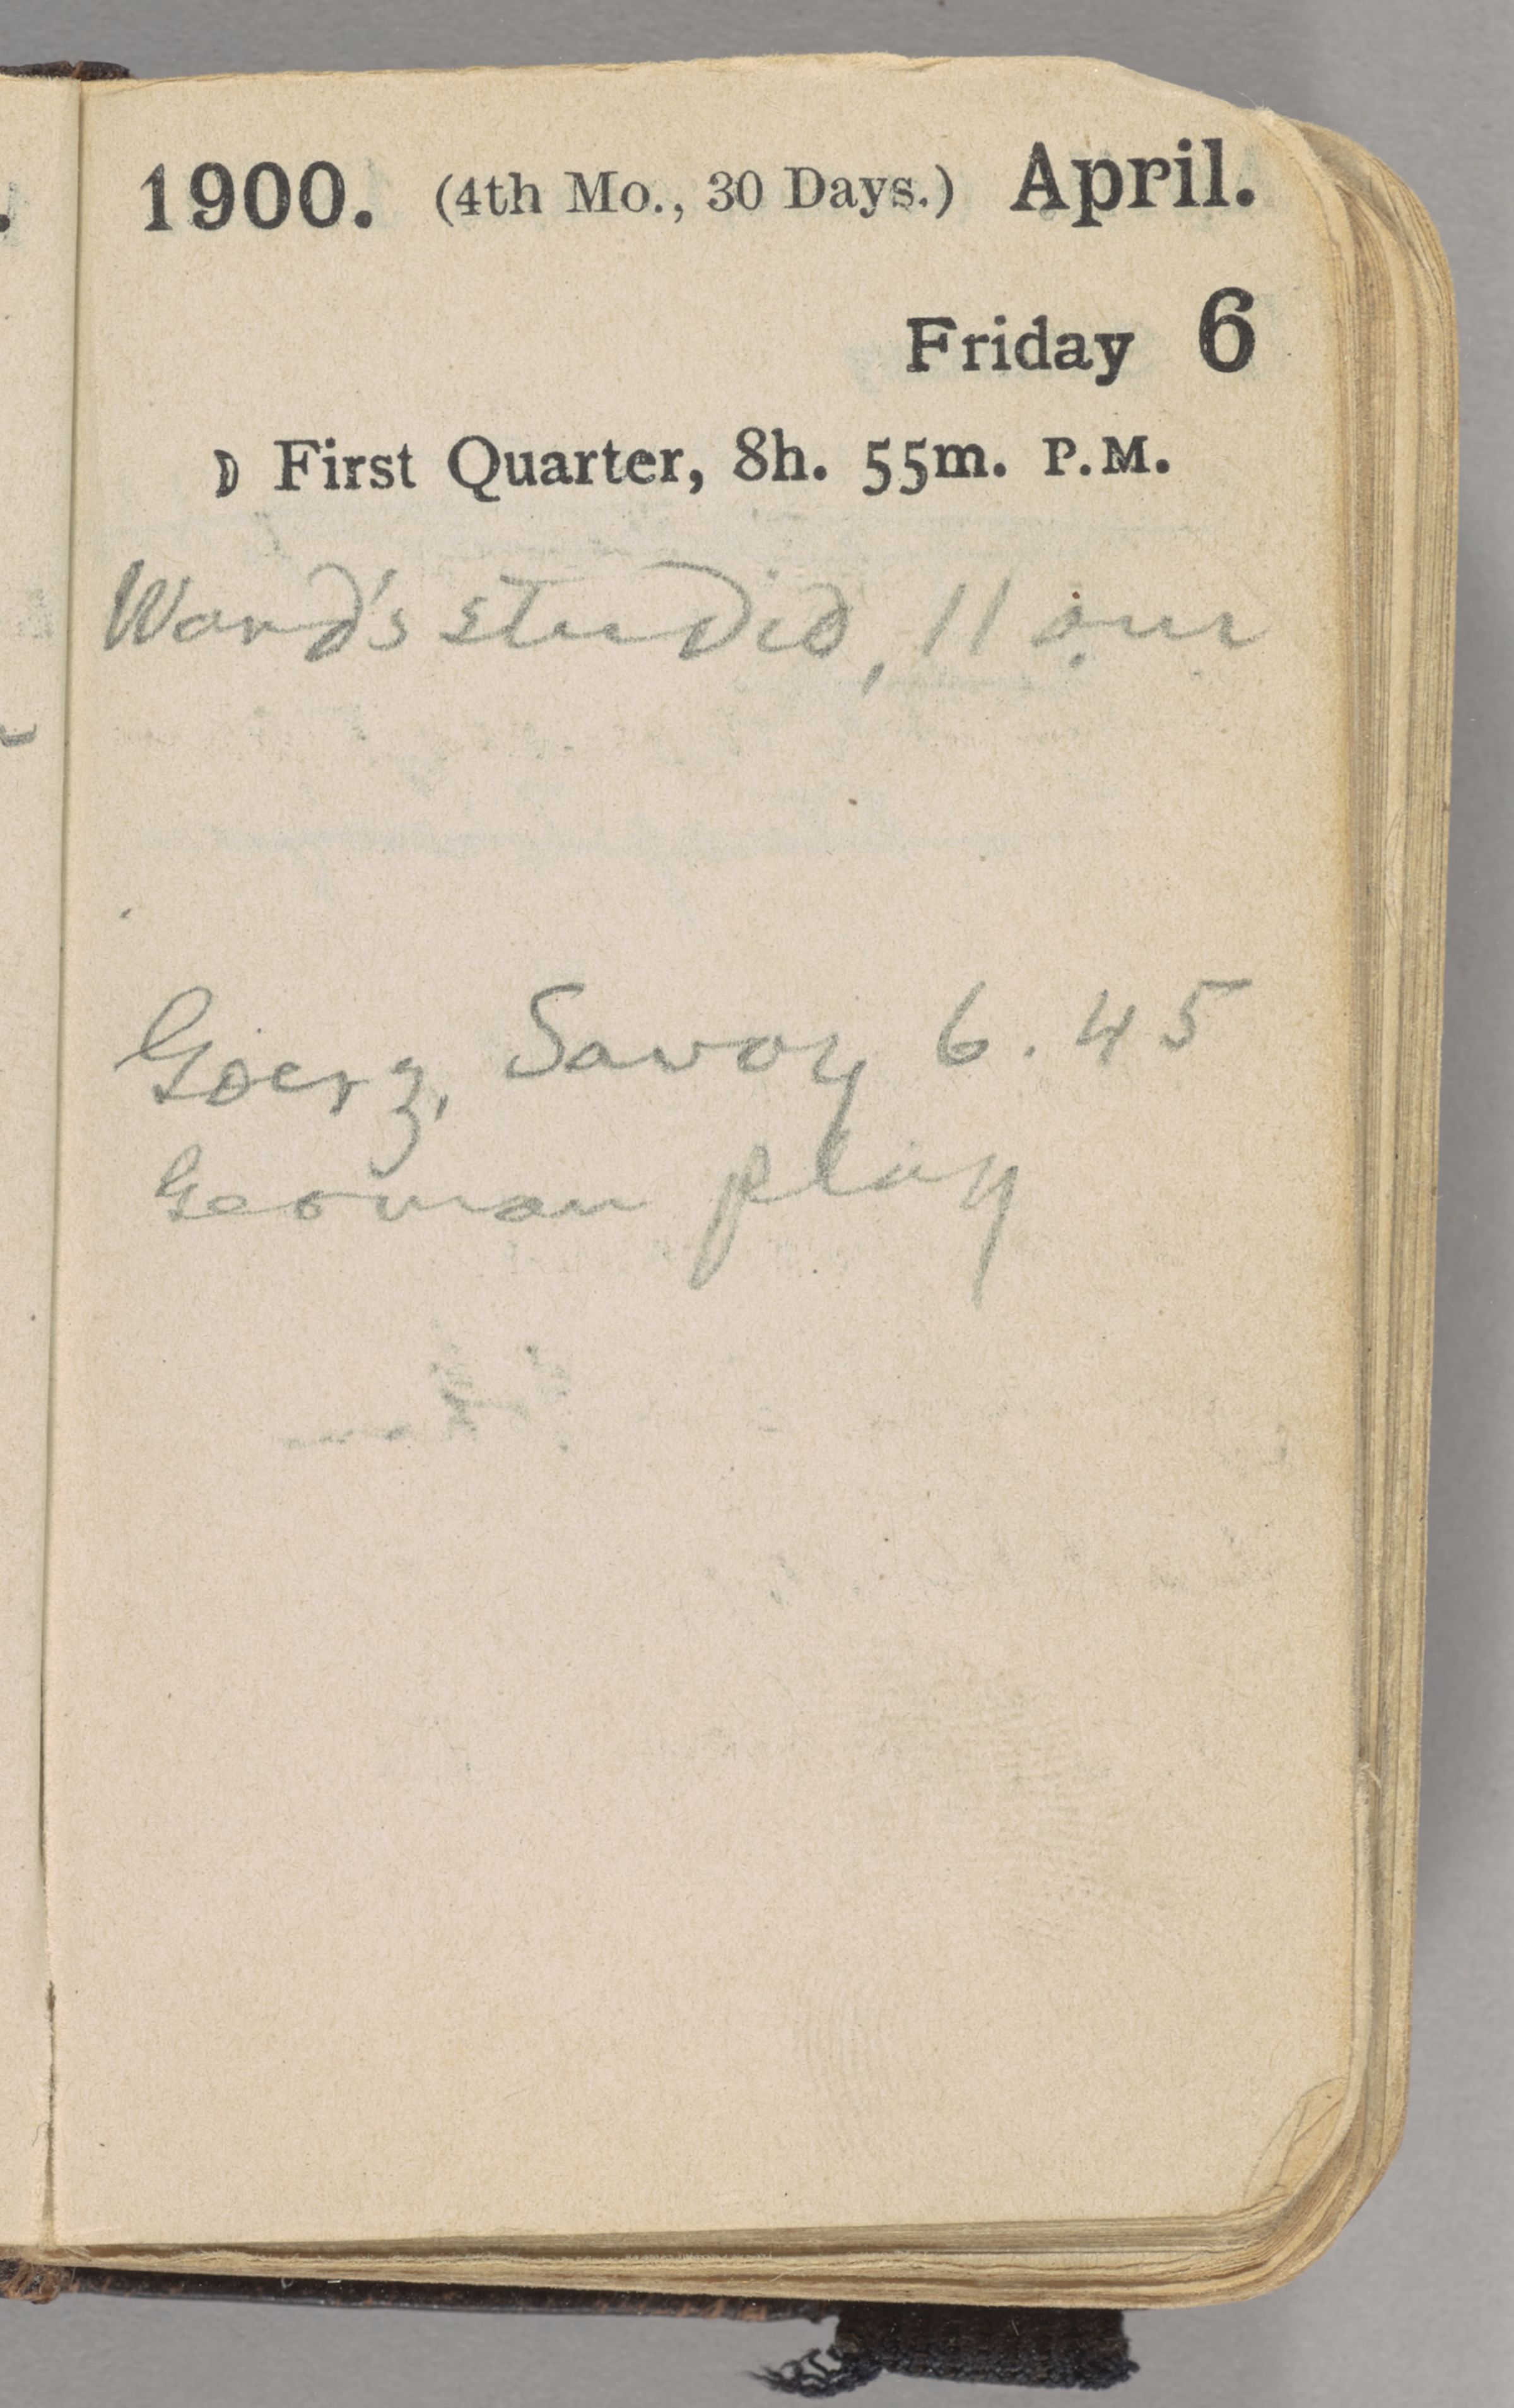 1900. (4th Mo., 30 Days.) April.
Friday 6
☽ First Quarter, 8h. 55m. P.M.
Ward's studio, 11 am
Goerz, Savoy 6.45
German play